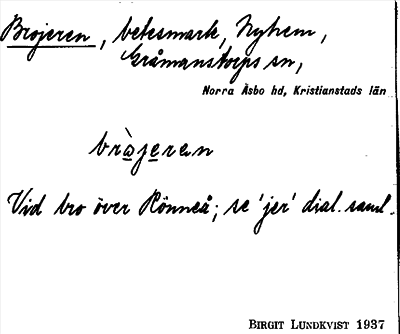 Brojeren, betesmark, Nyhem,
Gråmanstorps sn,
Norra Åsbo hd, Kristianstads län
bròjeren
Vid bro över Rönneå; se 'jer' dial. saml.
BIRGIT LUNDKVIST 1937